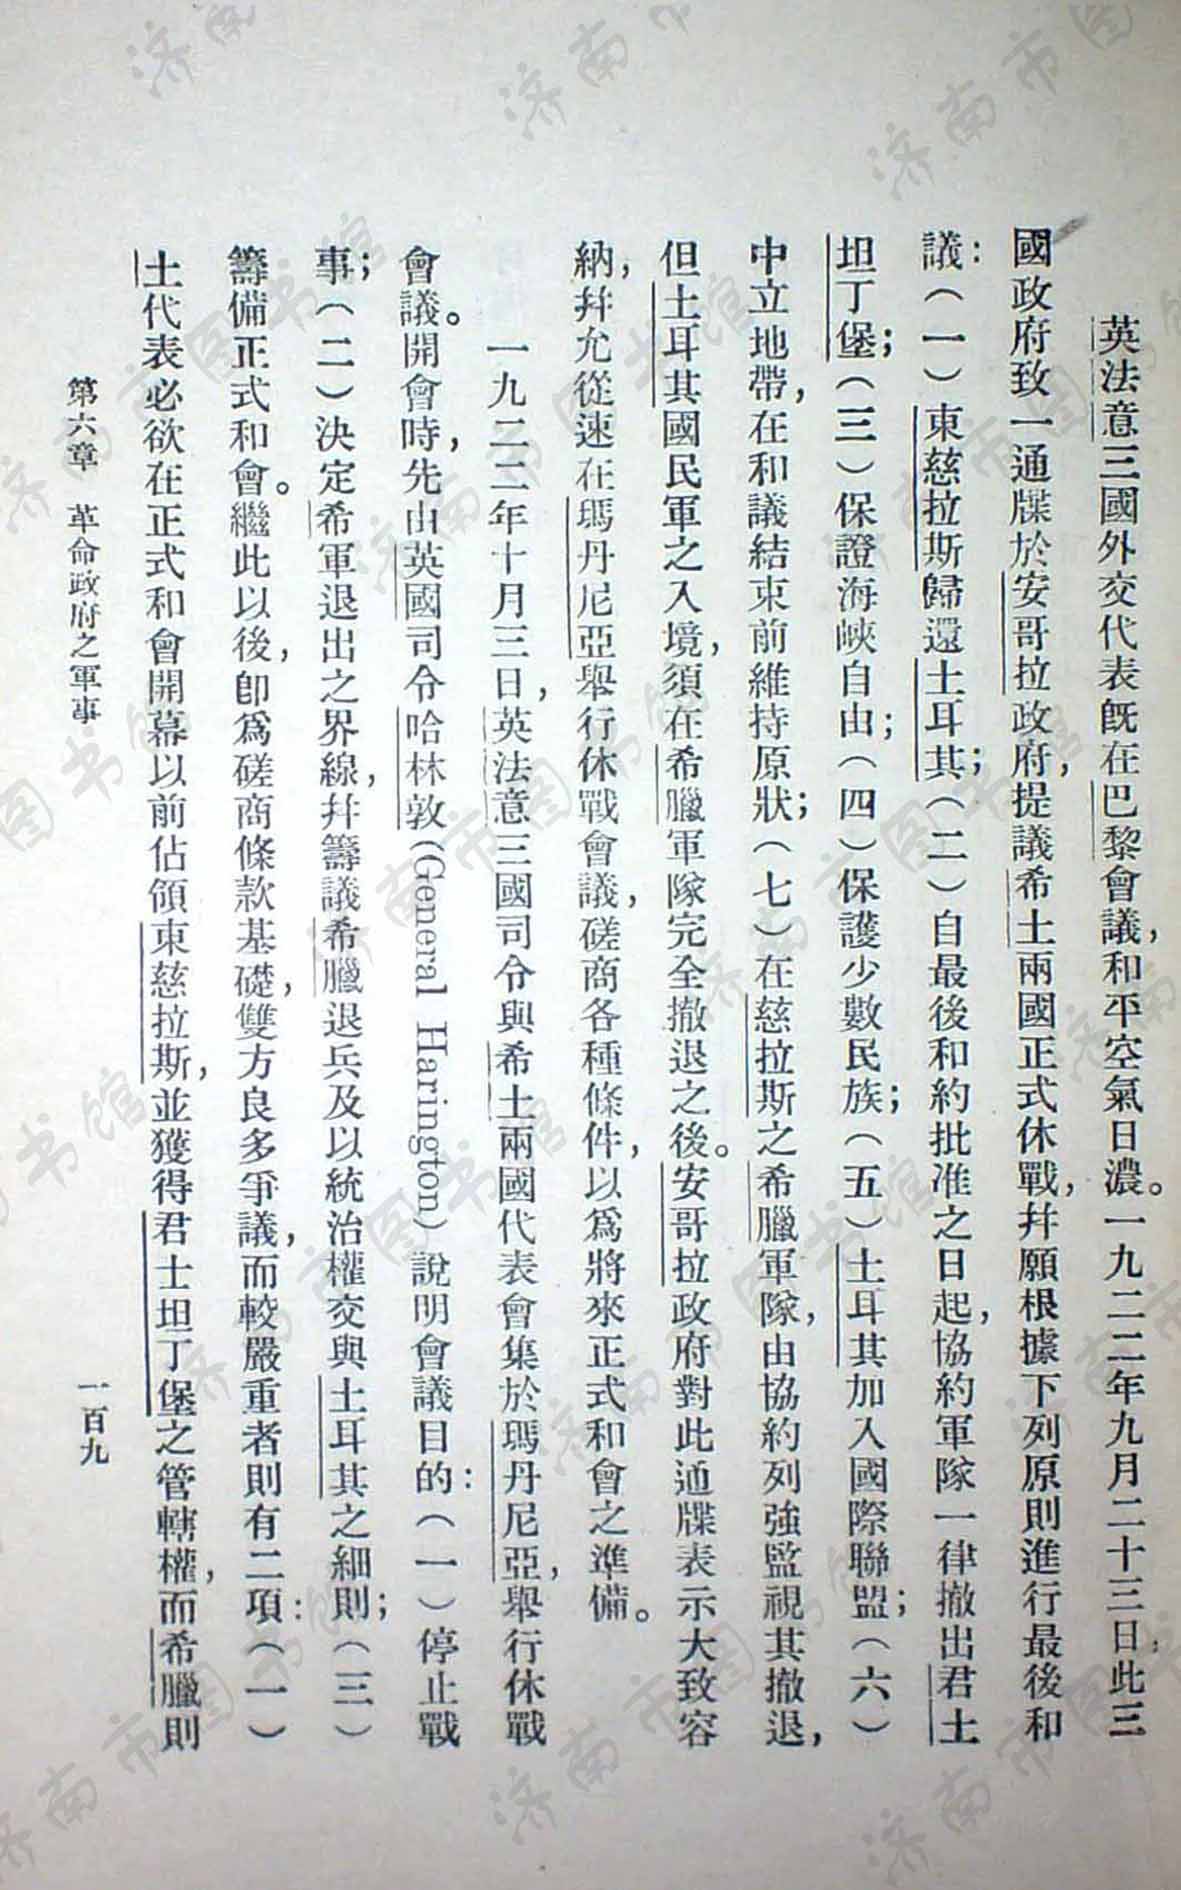 英法意三國外交代表既在巴黎會議，和平空氣日濃。一九二二年九月二十三日，此三
國政府致一通牒於安哥拉政府，提議希土兩國正式休戰，幷願根據下列原則進行最後和
議：（一）東慈拉斯歸還土耳其；（二）自最後和約批准之日起，協約軍隊一律撤出君士
坦丁堡；（三）保證海峽自由；（四）保護少數民族；（五）土耳其加入國際聯盟；（六）
中立地帶，在和議結束前維持原狀；（七）在慈拉斯之希臘軍隊，由協約列強監視其撤退，
但土耳其國民軍之入境，須在希臘軍隊完全撤退之後。安哥拉政府對此通牒表示大致容
納，幷允從速在瑪丹尼亞舉行休戰會議，磋商各種條件，以爲將來正式和會之準備。
一九二二年十月三日，英法意三國司令與希土兩國代表會集於瑪丹尼亞，舉行休戰
會議。開會時，先由英國司令哈林敦(General Harington)說明會議目的：（一）停止戰
事；（二）決定希軍退出之界線，幷籌議希臘退兵及以統治權交與土耳其之細則；（三）
籌備正式和會。繼此以後，卽爲磋商條款基礎，雙方良多爭議，而較嚴重者則有二項：（一）
土代表必欲在正式和會開幕以前佔領東慈拉斯，並獲得君士坦丁堡之管轄權，而希臘則
第六章　革命政府之軍事
一百九
济南市图书馆